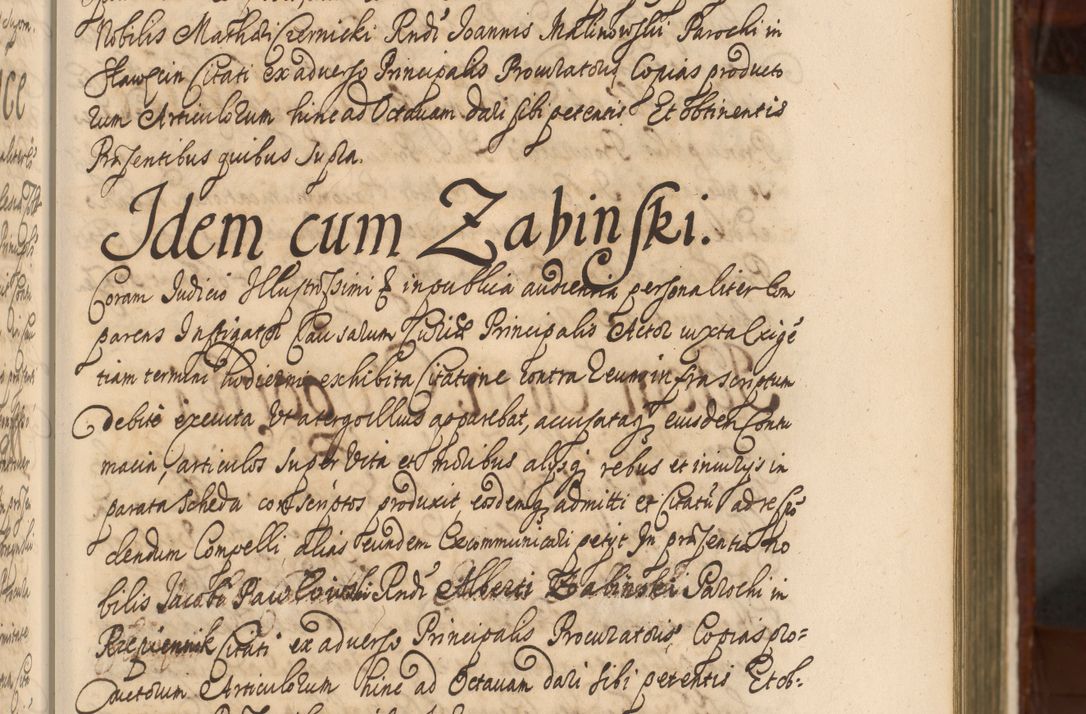 Nobilis Mathei Czernicki Rndi Joannis Malinowskii Parochi in
Sławscin Citati ex adverso Principalis Procuratoris Copias producto
rum Articulorum hinc ad Octavam dari sibi petentis Et obtinentis
Præsentibus quibus supra.
Idem cum Zabinski.
Coram Judicio Illustrissimi & in publica audientia personaliter Com
parens Instigator Causarum Judicii Principalis Actor iuxta Exigē
tiam termini hodierni exhibita Citatione Contra Reum infrascriptum
debite executa Ut a tergo illius apparebat, accusataq3 eiusdem Contu
macia, articulos super Vita et moribus alysq3 rebus et iniurijs in
parata Scheda conscriptos produxit eosdemq3 admitti et Citatū ad respō
dendum Compelli alias eundem Excommunicari petijt In præsentia No
bilis Jacobi Pawlowski Rndi Alberti Zabinski Parochi in
Rzepiennik Citati ex adverso Principalis Procuratoris Copias pro=
ductorum Articulorum hinc ad Octavam dari sibi petentis Et ob-